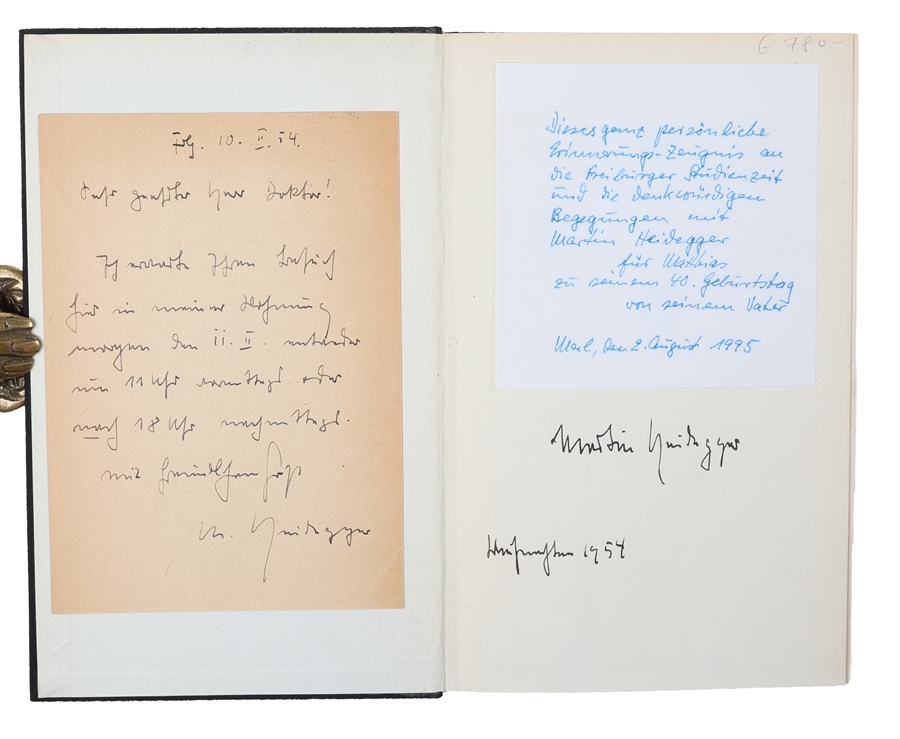 Frbg. 10. II. 54.
Sehr geehrter Herr Doktor!
Ich erwarte Ihren Besuch
hier in meiner Wohnung
morgen den 11. II. entweder
um 11 Uhr vormittags oder
nach 18 Uhr nachmittags.
Mit freundlichem Gruß
M. Heidegger
€ 780–
Dieses ganz persönliche
Erinnerungs-Zeugnis an
die Freiburger Studienzeit
und die denkwürdigen
Begegnungen mit
Martin Heidegger
für Mathias
zu seinem 40. Geburtstag
von seinem Vater
Marl, den 2. August 1995
Martin Heidegger
Weihnachten 1954